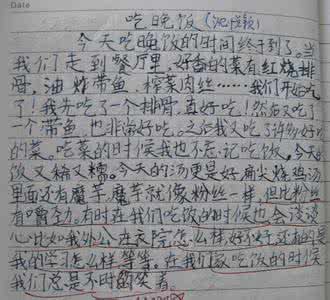 Date
吃晚饭
今天吃晚饭的时间终于到了。当
我们走到餐厅里,好香的菜有红烧排
骨,油炸带鱼,榨菜肉丝……我们开始吃
了!我先吃了一个排骨,真好吃!然后又吃了
一个带鱼,也非常好吃。之后我又吃了许多好吃
的菜。吃菜的时候我也不忘记吃饭。今天的
饭又稀又糯。今天的汤更是好扁尖炖鸡汤
里面还有魔芋,魔芋就像粉丝一样,但比粉丝
有嚼劲。有时在我们吃饭的时候也会谈谈
心比如我外公在医院怎么样,好不好,还有的是
我的学习怎么样等等,在我们吃饭的时候
我们总是不时的笑着。